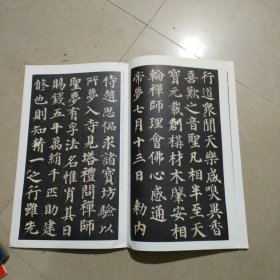 行道衆聞天樂咸嗅異香
喜歎之音聖凡相半至天
寶元載創構材木肇安相
輪禪師理會佛心感通
帝夢七月十三日　敕內
侍趙思侃求諸寶坊驗以
所夢入寺見塔禮問禪師
聖夢有孚法名惟肖其日
賜錢五十萬絹千匹助建
修也則知精一之行雖先